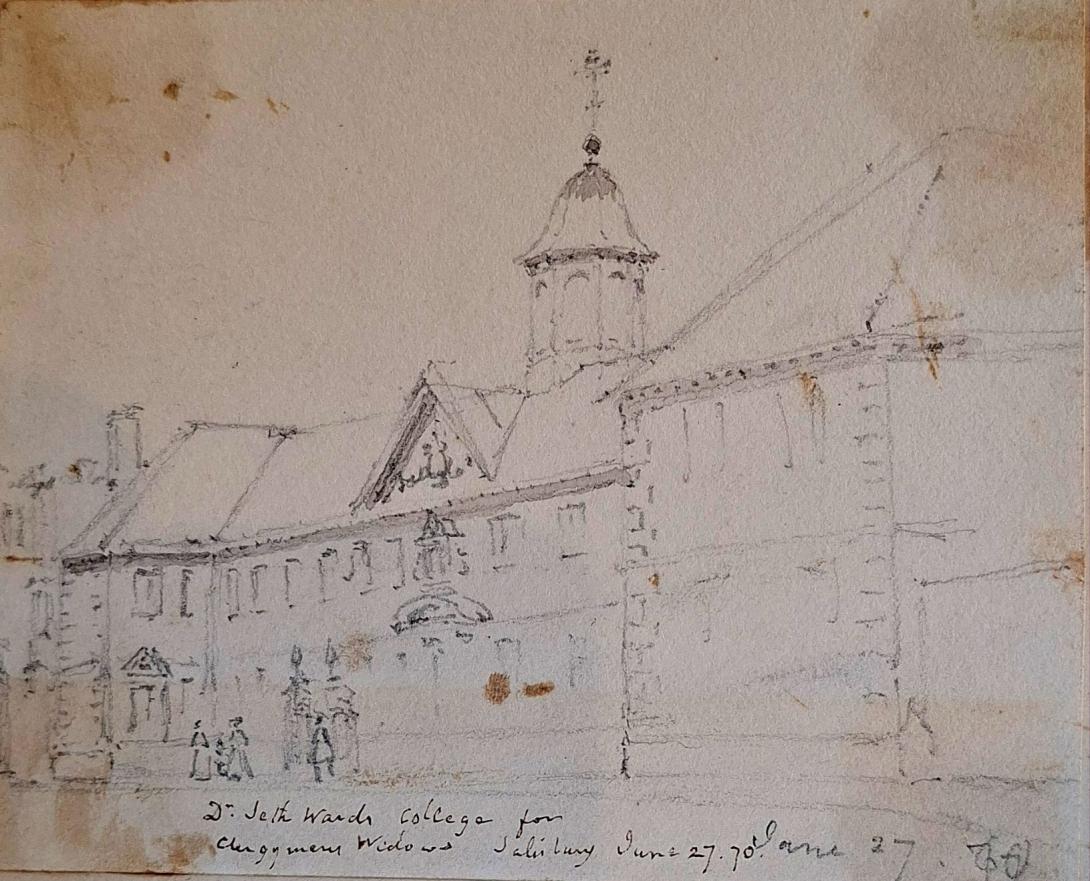 Dr. Seth Wards College for
Clergymens Widows Salisbury June 27. 70. June 27.